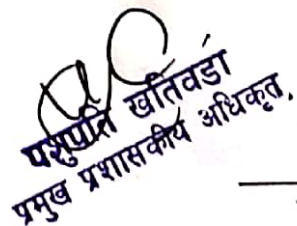 पशुपति खतिवडा
प्रमुख प्रशासकीय अधिकृत